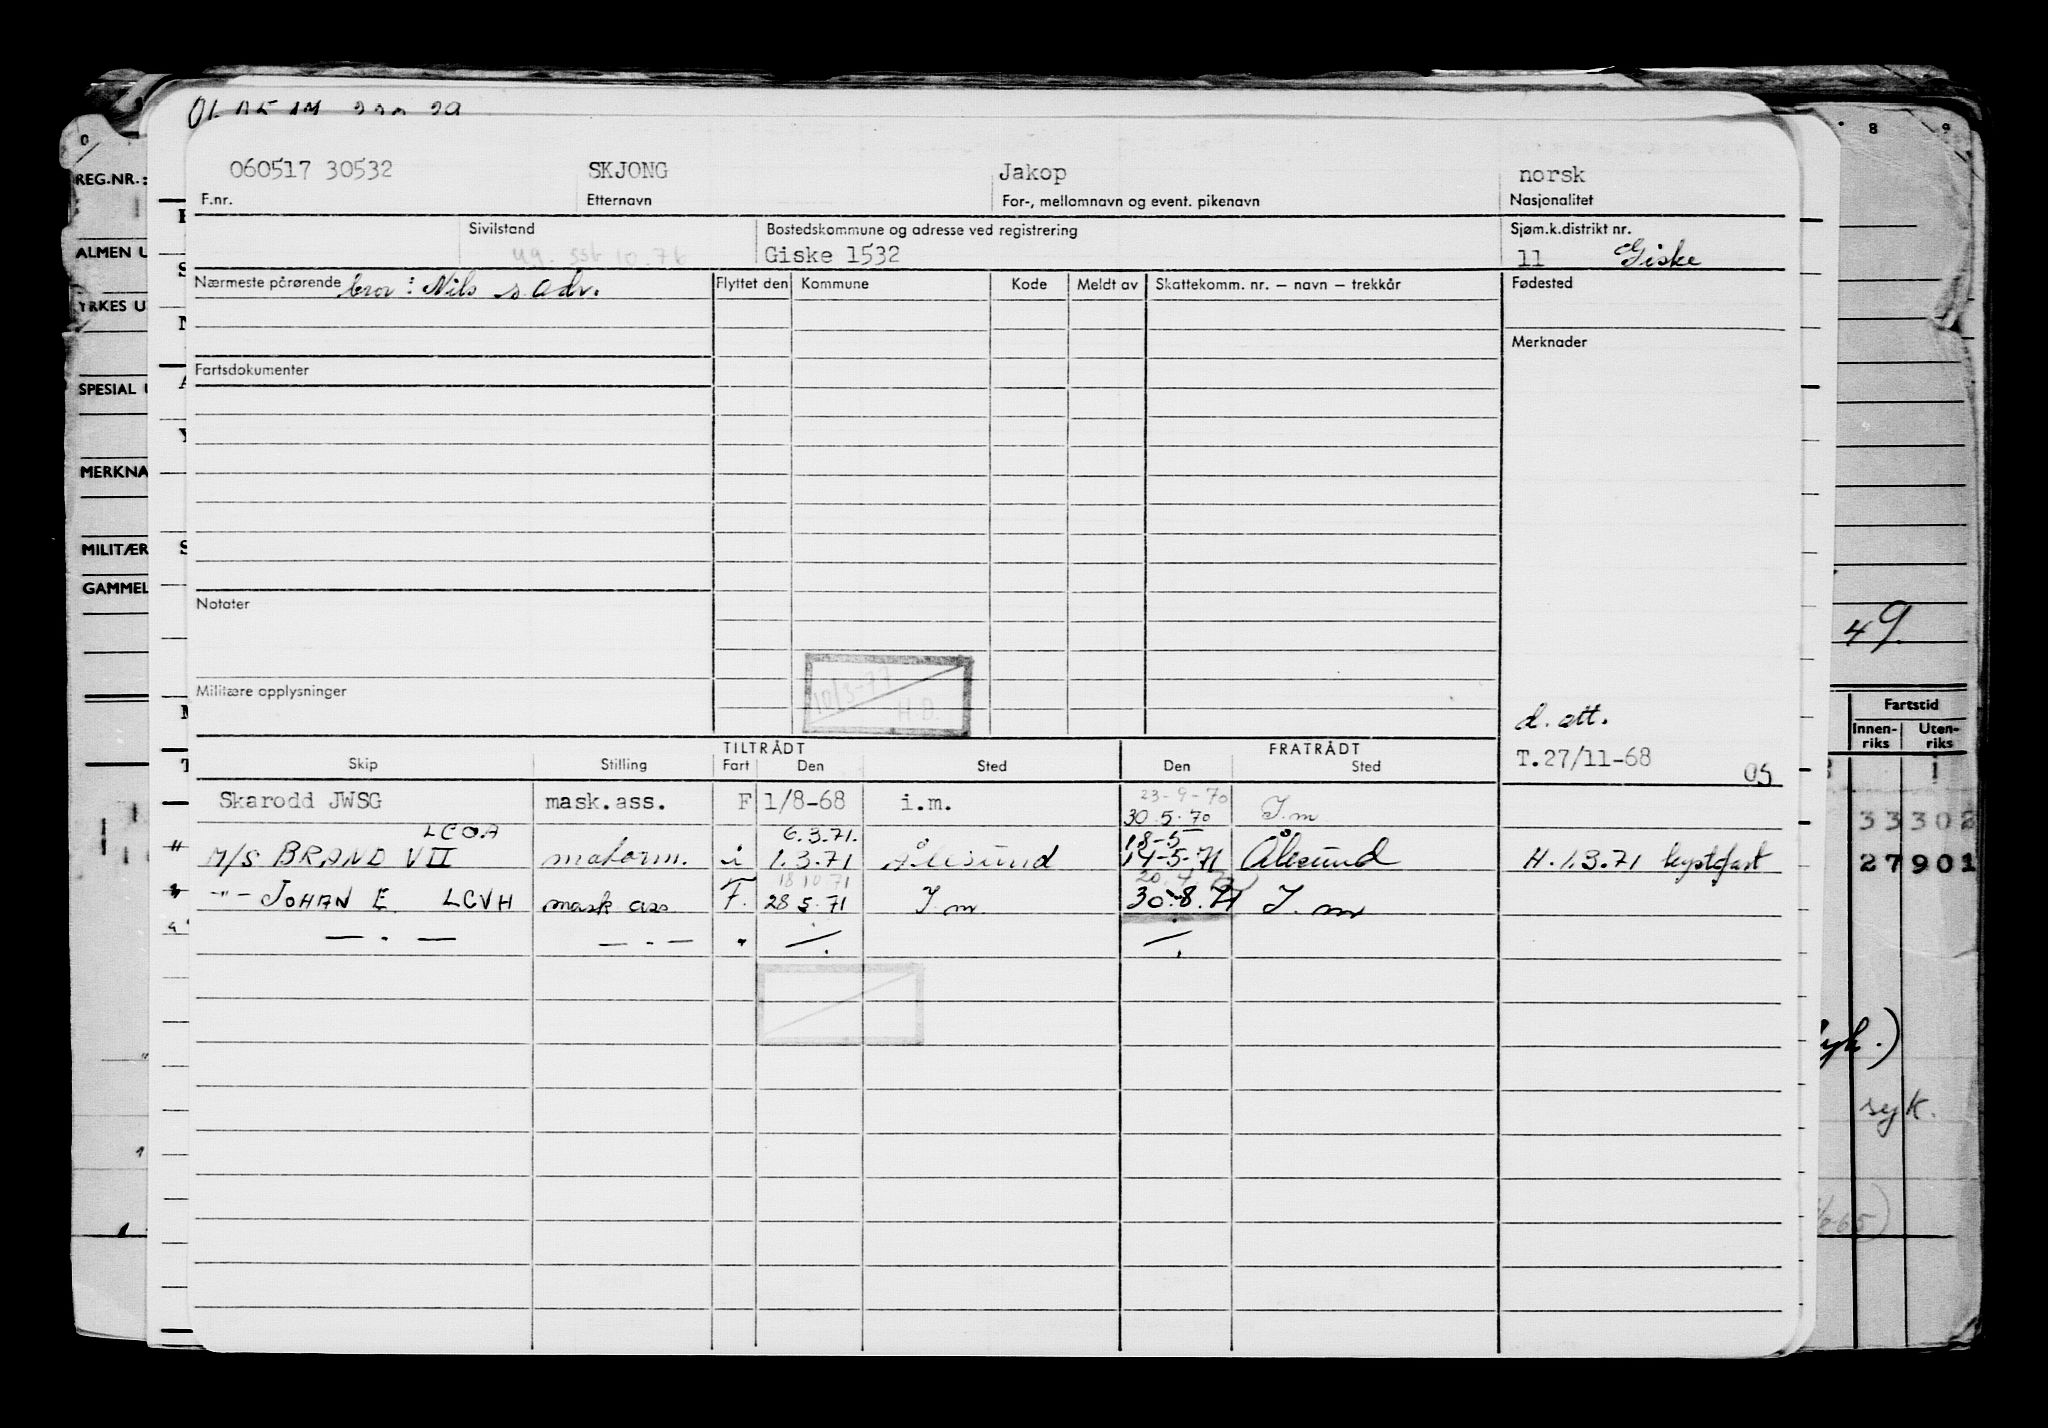 060517 30532 SKJONG Jakop norsk
F.nr. Etternavn For-, mellomnavn og event. pikenavn Nasjonalitet
Sivilstand Bostedskommune og adresse ved registrering Sjøm.k.distrikt nr.
ug. sst 10.76 Giske 1532 11 Giske
Nærmeste pårørende bror: Nils s. adr. Flyttet den Kommune Kode Meldt av Skattekomm. nr. – navn – trekkår Fødested
Merknader
Fartsdokumenter
Notater
10/3-77
H.D.
Militære opplysninger
d. att.
TILTRÅDT FRATRÅDT
T.27/11-68 05
Skip Stilling Fart Den Sted Den Sted
23-9-70
Skarodd JWSG mask.ass. F 1/8-68 i.m. 30.5.70 I.m
LCOA 6.3.71. 18-5
" M/S BRAND VII motorm. i 1.3.71 Ålesund 14-5-71 Ålesund H. 1.3.71 kystfart
18 10 71
-"- JOHAN E. LCVH mask ass F. 28 5.71 I.m 30.8.71 I.m
— . — — . — " /. /.
REG.NR.:
ALMEN U
YRKES U
SPESIAL U
MERKNA
MILITÆR
GAMMEL
8 9
49.
Fartstid
Innen-riks Uten-riks
33302
27901
syk.